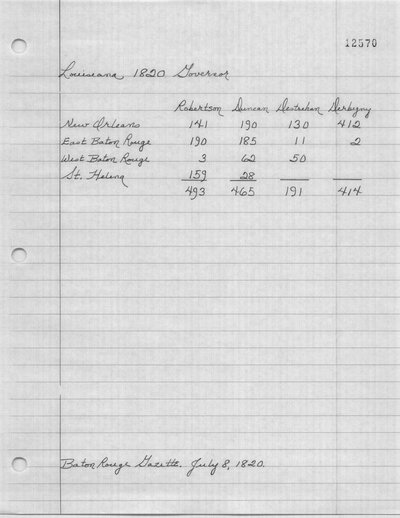 12570
Louisiana 1820 Governor
Robertson Duncan Destrehan Derbigny
New Orleans 141 190 130 412
East Baton Rouge 190 185 11 2
West Baton Rouge 3 62 50
St. Helena 159 28
493 465 191 414
Baton Rouge Gazette. July 8, 1820.